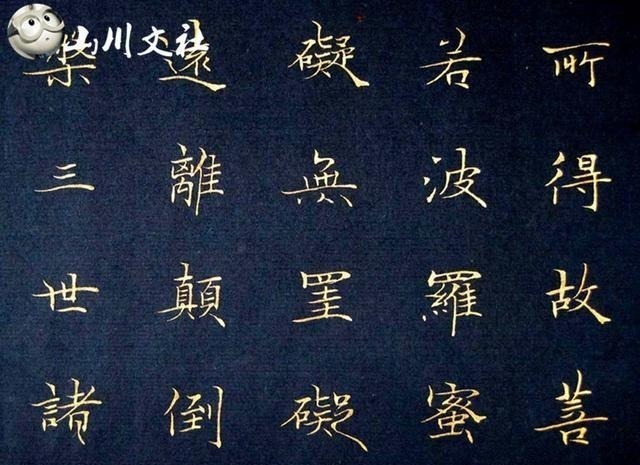 山川文社
所得故菩
若波羅蜜
礙無罣礙
遠離顛倒
槃三世諸